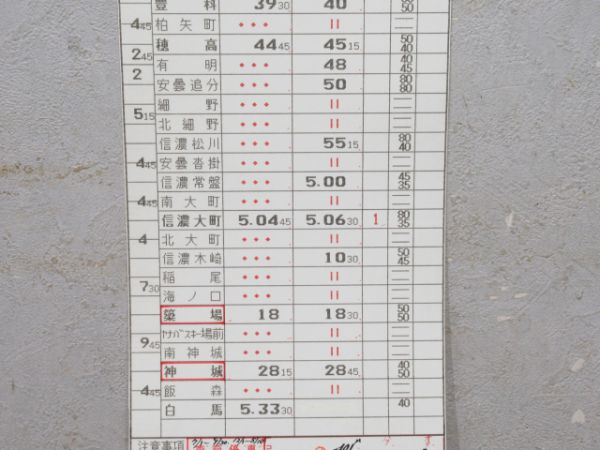 豊科 39 30 40 50
4 45 柏矢町 ・・・ 〃
穂高 44 45 45 15 50 40
2 45 有明 ・・・ 48 40 45
2 安曇追分 ・・・ 50 80 80
細野 ・・・ 〃
5 15 北細野 ・・・ 〃
信濃松川 ・・・ 55 15 80 40
4 45 安曇沓掛 ・・・ 〃
信濃常盤 ・・・ 5.00 45 35
4 45 南大町 ・・・ 〃
信濃大町 5.04 45 5.06 30 1 80 35
4 北大町 ・・・ 〃
信濃木崎 ・・・ 10 30 50 45
稲尾 ・・・ 〃
7 30 海ノ口 ・・・ 〃
簗場 18 18 30 50 50
ヤナバスキー場前 ・・・ 〃
9 45 南神城 ・・・ 〃
神城 28 15 28 45 40 50
4 45 飯森 ・・・ 〃
白馬 5.33 30 40
注意事項